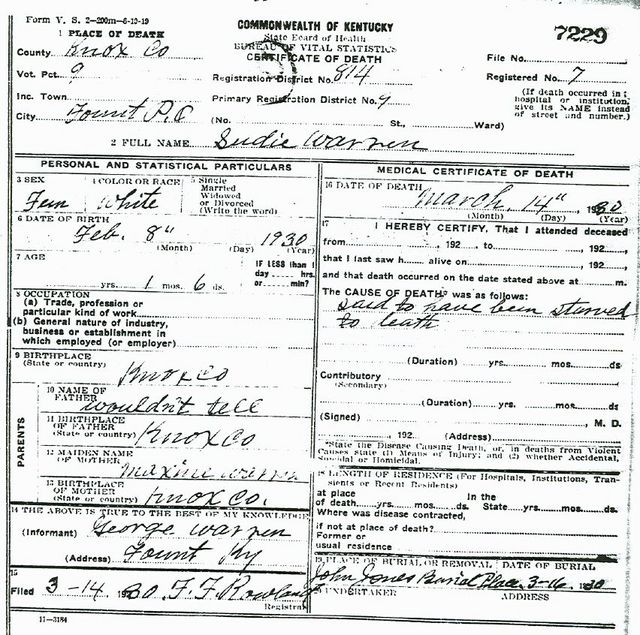 Form V. S. 2-200m-6-19-19
COMMONWEALTH OF KENTUCKY
State Board of Health
BUREAU OF VITAL STATISTICS
CERTIFICATE OF DEATH
7229
1 PLACE OF DEATH
County Knox Co
File No.
Vot. Pct. 9
Registration District No. 814
Registered No. 7
Inc. Town
Primary Registration District No. 9
(If death occurred in hospital or institution, give its NAME instead of street and number.)
City Fount P.O
(No. St., Ward)
2 FULL NAME Sudie Warren
PERSONAL AND STATISTICAL PARTICULARS
3 SEX Fem
4 COLOR OR RACE White
5 Single
Married
Widowed
or Divorced
(Write the word)
6 DATE OF BIRTH
Feb. 8" 1930
(Month) (Day) (Year)
7 AGE
IF LESS than 1
day hrs.
or min?
yrs. 1 mos. 6 ds.
8 OCCUPATION
(a) Trade, profession or
particular kind of work
(b) General nature of industry,
business or establishment in
which employed (or employer)
9 BIRTHPLACE
(State or country) Knox Co
PARENTS
10 NAME OF
FATHER wouldn't tell
11 BIRTHPLACE
OF FATHER
(State or country) Knox Co
12 MAIDEN NAME
OF MOTHER Maxine Warren
13 BIRTHPLACE
OF MOTHER
(State or country) Knox Co.
14 THE ABOVE IS TRUE TO THE BEST OF MY KNOWLEDGE
(Informant) George Warren
(Address) Fount Ky
15
Filed 3-14 1930 F. F. Rowland
Registrar
11-3184
MEDICAL CERTIFICATE OF DEATH
16 DATE OF DEATH
March 14" 1930
(Month) (Day) (Year)
17 I HEREBY CERTIFY, That I attended deceased
from 192 to 192
that I last saw h alive on 192
and that death occurred on the date stated above at m.
The CAUSE OF DEATH* was as follows:
said to have been starved
to death
(Duration) yrs. mos. ds
Contributory
(Secondary)
(Duration) yrs. mos. ds
(Signed) M. D.
192 (Address)
*State the Disease Causing Death, or, in deaths from Violent
Causes state (1) Means of Injury; and (2) whether Accidental,
Suicidal or Homicidal.
18 LENGTH OF RESIDENCE (For Hospitals, Institutions, Transients or Recent Residents)
at place In the
of death yrs. mos. ds. State yrs. mos. ds
Where was disease contracted,
if not at place of death?
Former or
usual residence
19 PLACE OF BURIAL OR REMOVAL DATE OF BURIAL
John Jones Burial Place 3-16 1930
UNDERTAKER ADDRESS